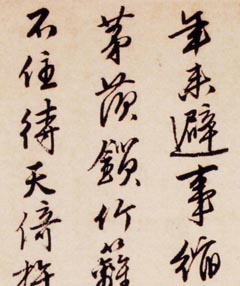 年来避事縮
茅茨鎖竹籬
不住待天倚